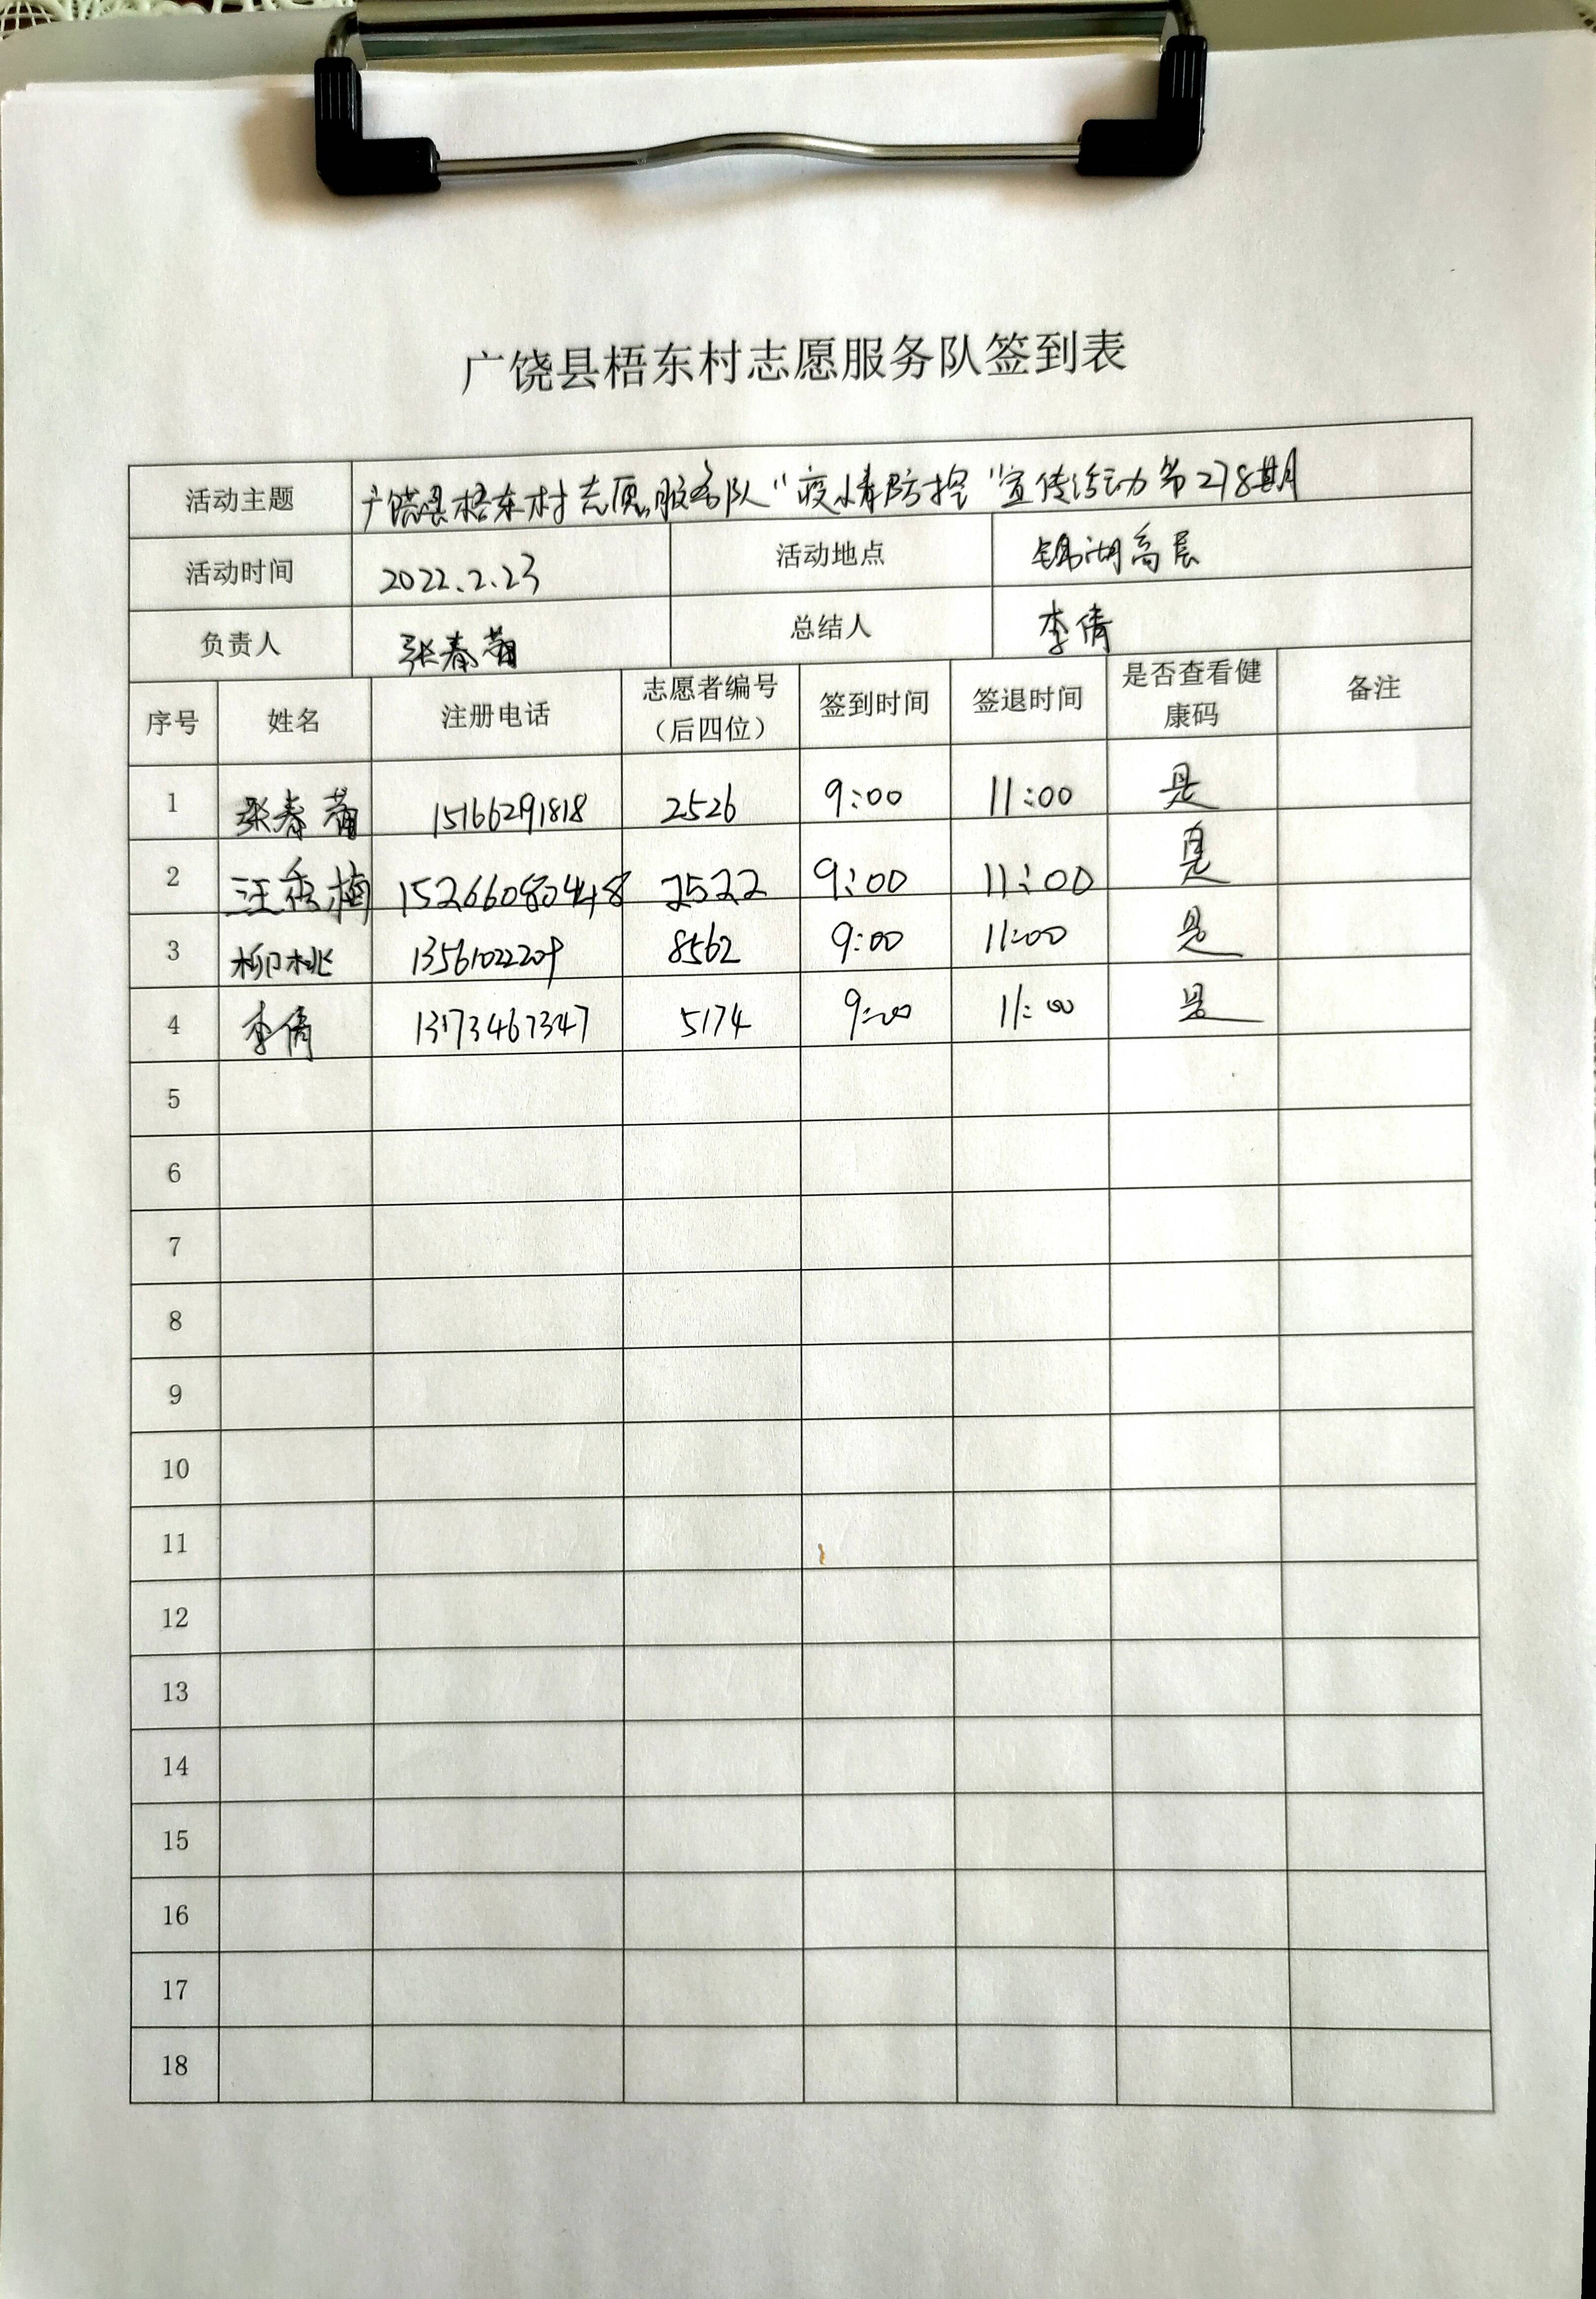 广饶县梧东村志愿服务队签到表
活动主题 广饶县梧东村志愿服务队“疫情防控”宣传活动第278期
活动时间 2022.2.23 活动地点 锦湖高层
负责人 张春菊 总结人 李倩
序号 姓名 注册电话 志愿者编号（后四位） 签到时间 签退时间 是否查看健康码 备注
1 张春菊 15166291818 2526 9:00 11:00 是
2 汪香梅 15266080448 2522 9:00 11:00 是
3 柳桃 13561022209 8562 9:00 11:00 是
4 李倩 13173467347 5174 9:00 11:00 是
5
6
7
8
9
10
11
12
13
14
15
16
17
18